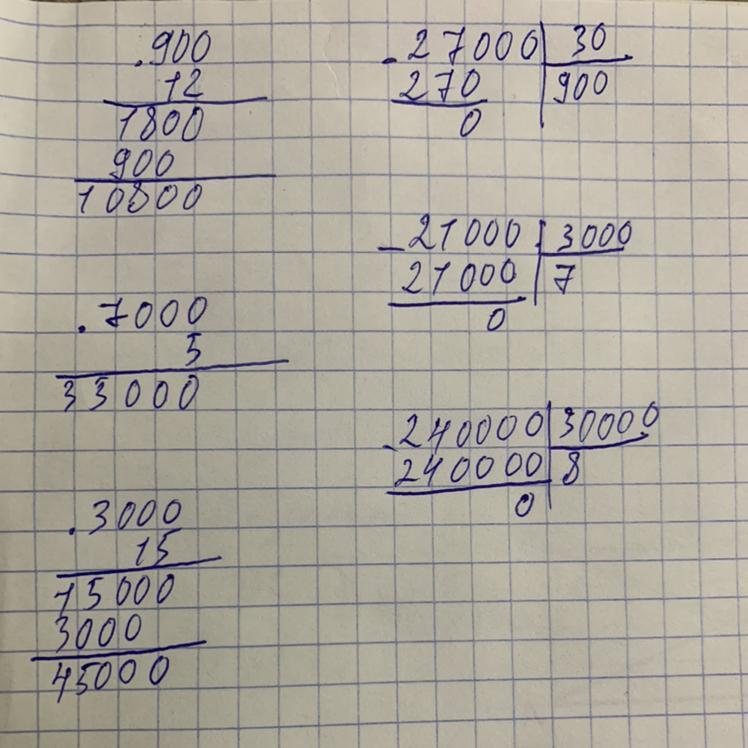 .900
12
1800
900
10800
.7000
5
35000
.3000
15
15000
3000
45000
-27000 30
270 900
0
-21000 3000
21000 7
0
-240000 30000
240000 8
0